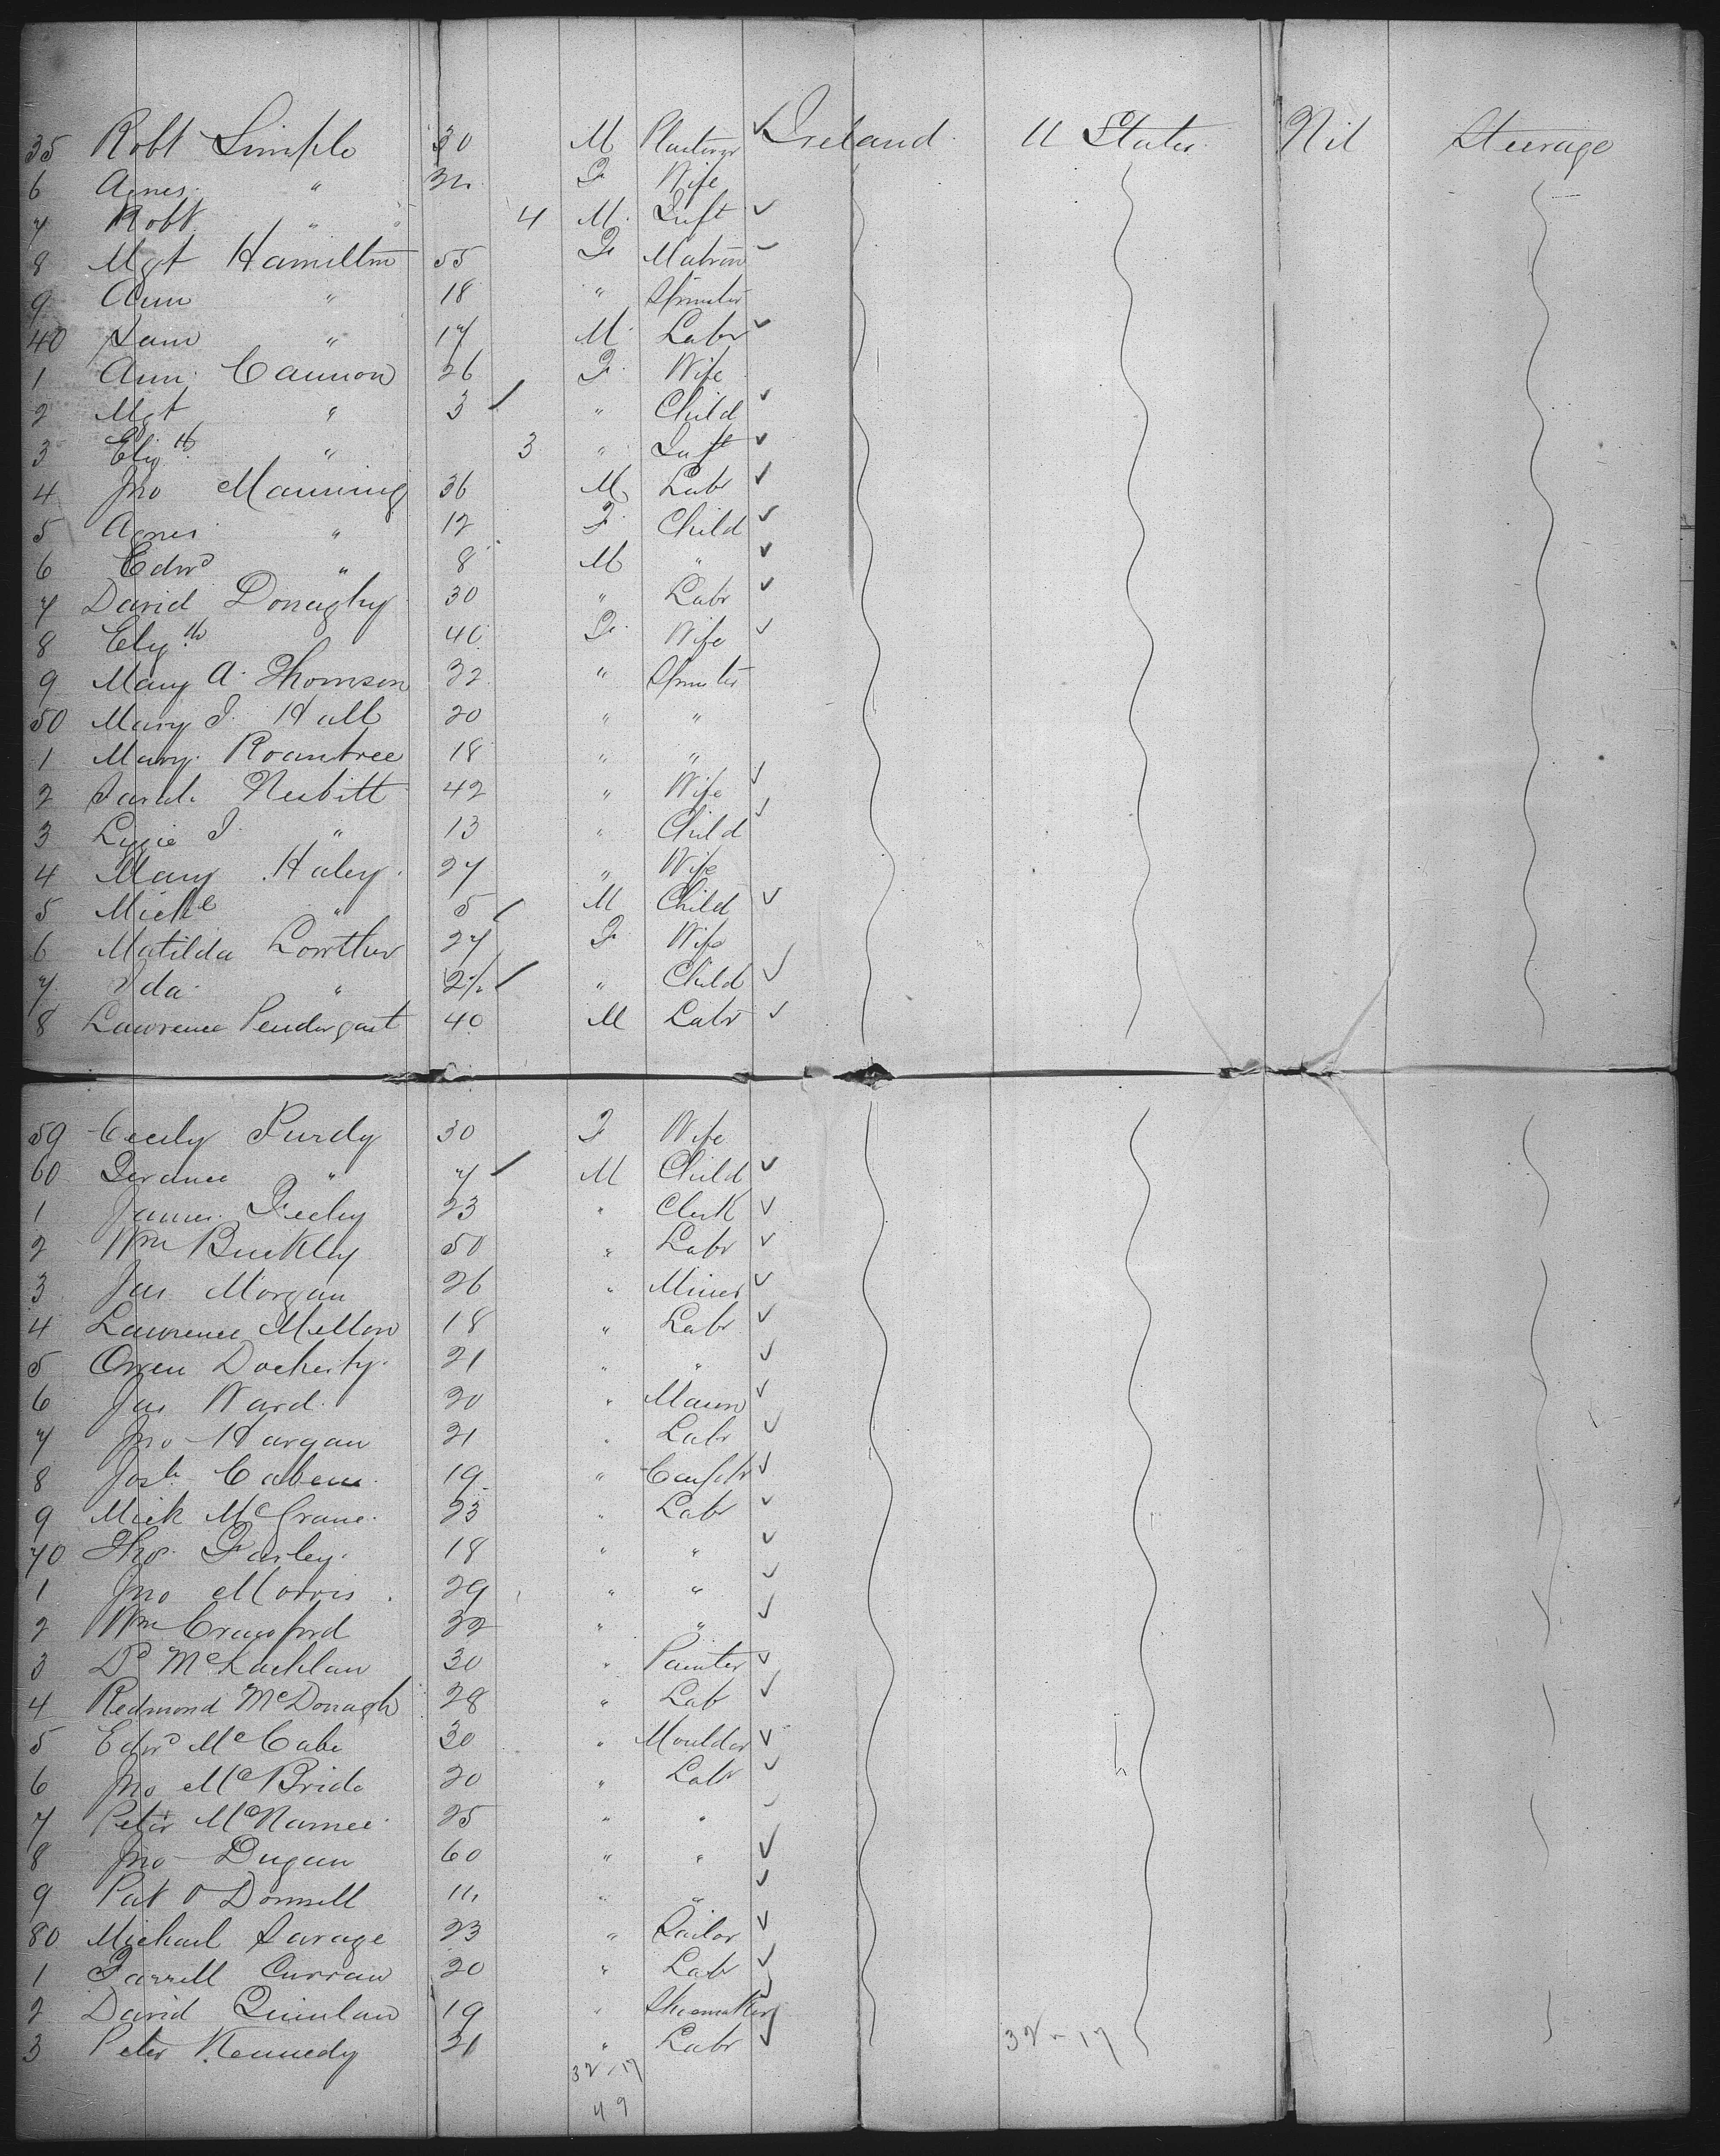 35 Robt Simple 30 M Plasterer ✓ Ireland U States Nil Steerage
6 Agnes " 32 F Wife
7 Robt " 4 M Inft ✓
8 Mgt Hamilton 55 F Matron ✓
9 Ann " 18 " Spinster
40 Sam " 17 M Labr ✓
1 Ann Cannon 26 F Wife
2 Mgt " 3 / " Child ✓
3 Elizth " 3 " Inft ✓
4 Jno Manning 36 M Labr ✓
5 Agnes " 12 F Child ✓
6 Edwd " 8 M " ✓
7 David Donaghy 30 " Labr ✓
8 Elizth 40 F Wife ✓
9 Mary A. Thomson 32 " Spinster
50 Mary J. Hall 20 " "
1 Mary Roantree 18 " "
2 Sarah Nesbitt 42 " Wife ✓
3 Lizzie J " 13 " Child ✓
4 Mary Haley 27 " Wife
5 Michl " 5 / M Child ✓
6 Matilda Lowther 27 F Wife
7 Ida " / " Child ✓
8 Lawrence Pendergast 40 M Labr ✓
59 Cecily Purdy 30 F Wife
60 Terance " 7 / M Child ✓
1 James Feeley 23 " Clerk ✓
2 Wm Buckley 50 " Labr ✓
3 Jas Morgan 26 " Miner ✓
4 Lawrence Mellon 18 " Labr ✓
5 Owen Docherty 21 " " ✓
6 Jas Ward 20 " Mason ✓
7 Jno Hargan 21 " Labr ✓
8 Josh 19 " ✓
9 Mick McGrane 23 " Labr ✓
70 Thos Farley 18 " " ✓
1 Jno Morris 29 " " ✓
2 Wm Crawford 32 " " ✓
3 Dd McLachlan 30 " Painter ✓
4 Redmond McDonagh 28 " Lab ✓
5 Edwd McCabe 30 " Moulder ✓
6 Jno McBride 20 " Labr ✓
7 Peter McNamee 25 " " ✓
8 Jno Dugan 60 " " ✓
9 Pat O Donnell 11 " " ✓
80 Michael Savage 23 " Sailor ✓
1 Farrell Curran 20 " Lab ✓
2 David Quinlan 19 " Shoemaker ✓
3 Peter Kennedy 21 " Labr ✓
32-17
32-17
49